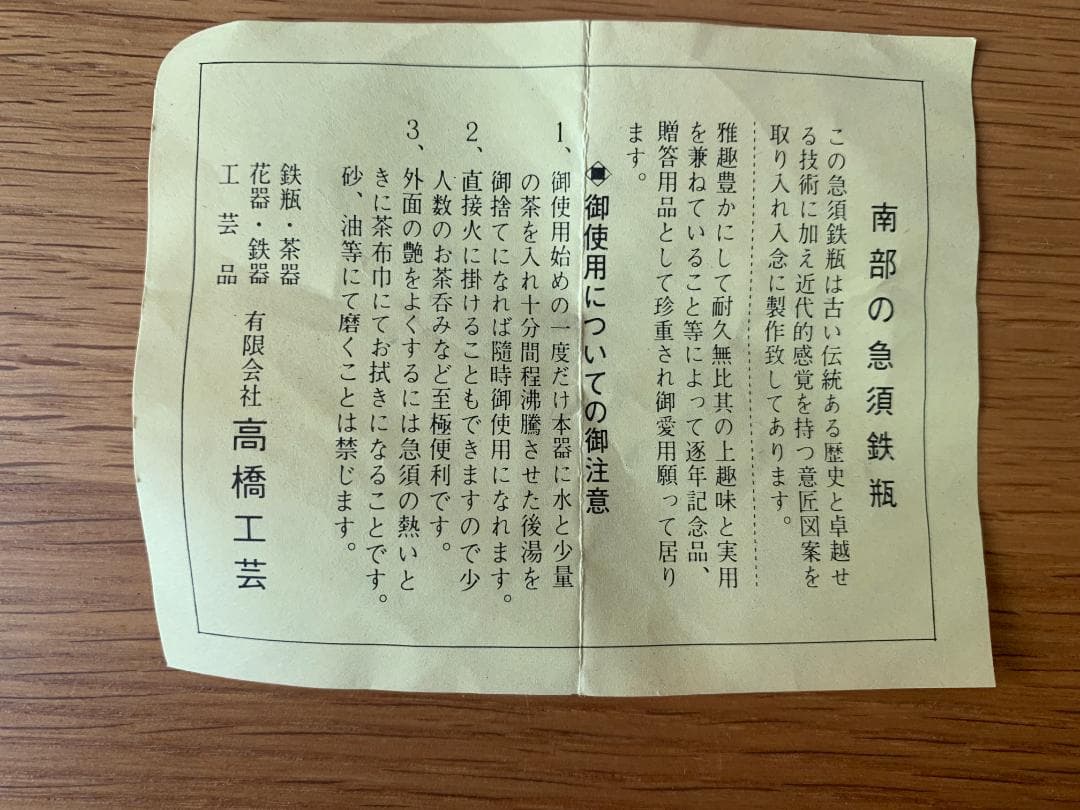 南部の急須鉄瓶
この急須鉄瓶は古い伝統ある歴史と卓越せ
る技術に加え近代的感覚を持つ意匠図案を
取り入れ入念に製作致してあります。
雅趣豊かにして耐久無比其の上趣味と実用
を兼ねていること等によって逐年記念品、
贈答用品として珍重され御愛用願って居り
ます。
御使用についての御注意
1、御使用始めの一度だけ本器に水と少量
の茶を入れ十分間程沸騰させた後湯を
御捨てになれば随時御使用になれます。
2、直接火に掛けることもできますので少
人数のお茶呑みなど至極便利です。
3、外面の艶をよくするには急須の熱いと
きに茶布巾にてお拭きになることです。
砂、油等にて磨くことは禁じます。
鉄瓶・茶器
花器・鉄器
工芸品
有限会社 高橋工芸